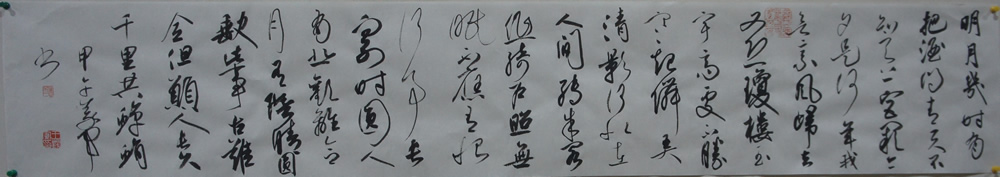 明月幾时有
把酒问青天不
知天上宫阙今
夕是何年我
欲乘風歸去
又恐瓊樓玉
宇高處不勝
寒起舞弄
清影何似在
人间轉朱阁
低綺户照無
眠不應有恨
何事長
向别时圓人
有悲歡離合
月有陰晴圓
缺此事古難
全但願人長久
千里共嬋娟
甲午